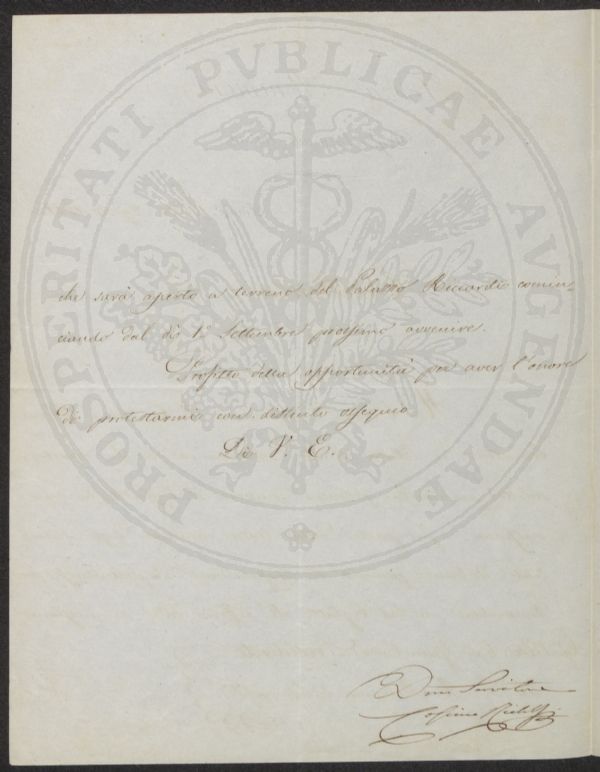 PROSPERITATI PVBLICAE AVGENDAE
che sarà aperto a terreno del Palazzo Riccardi comin=
ciando dal dì 1º Settembre prossimo avvenire.
Profitto della opportunità per aver l'onore
di protestarmi con distinto ossequio
Di V. E.
Servitore
Cosimo Ridolfi